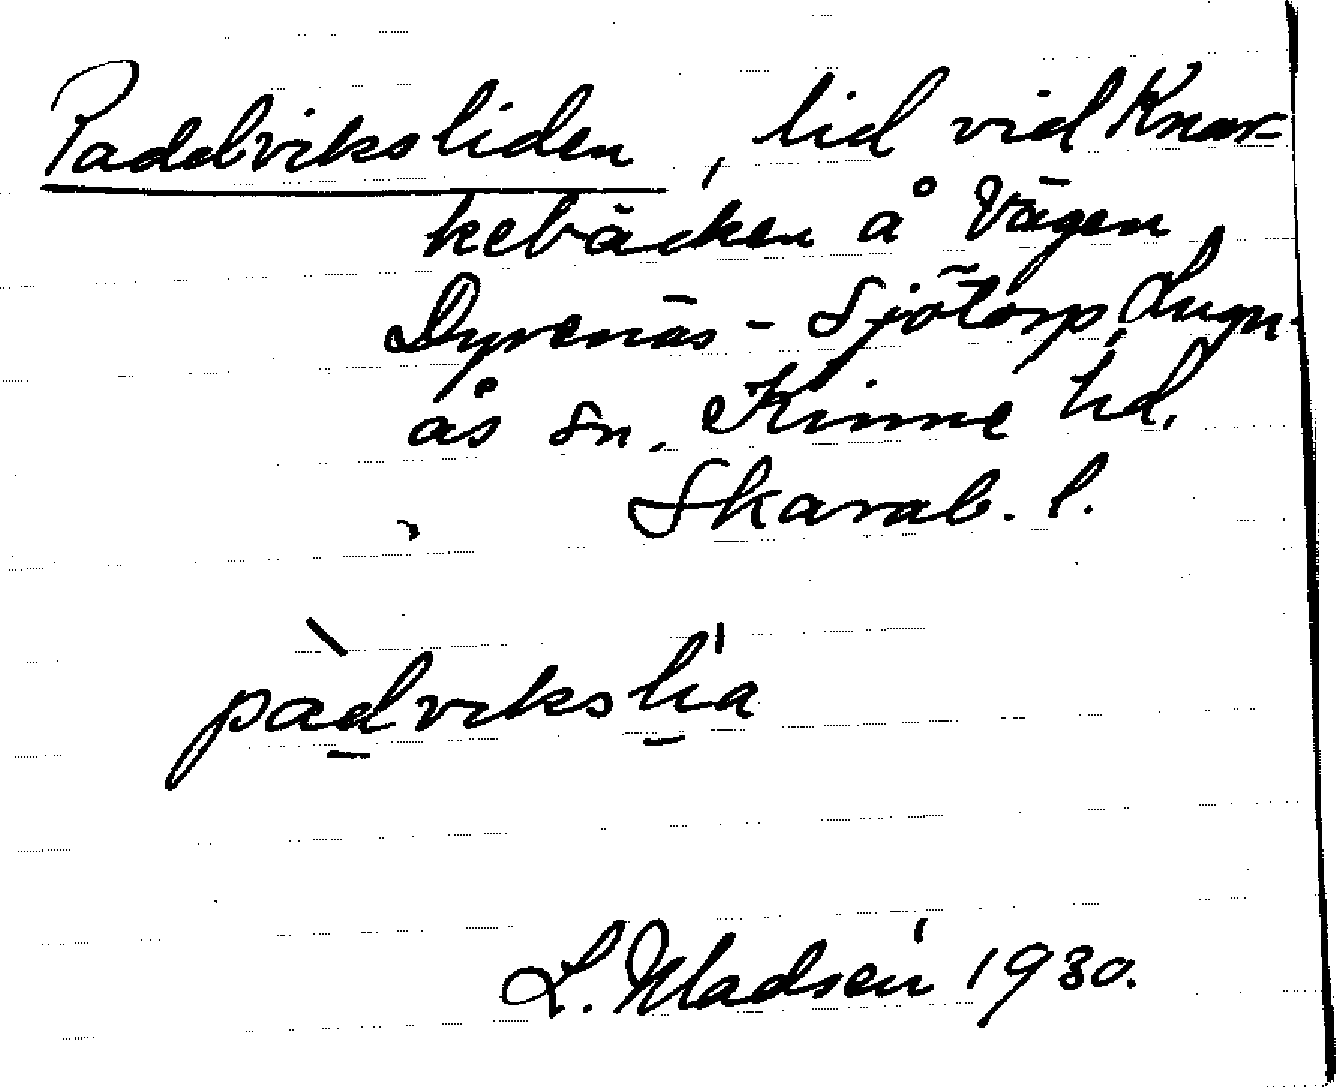 Paddviksliden, lid vid Knar-
kebäcken å vägen
Dyrenäs - Sjötorp, Lugn-
ås sn. Kinne hd.
Skarab. l.
pàdvikslia
L. Madsén 1930.